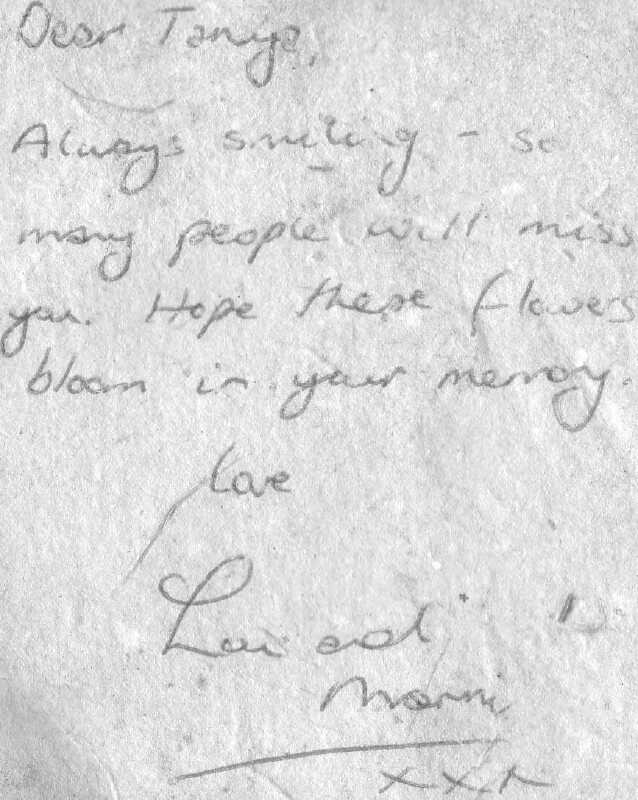 Dear Tanya,
Always smiling - so
many people will miss
you. Hope these flowers
bloom in your memory.
love
and
xxx